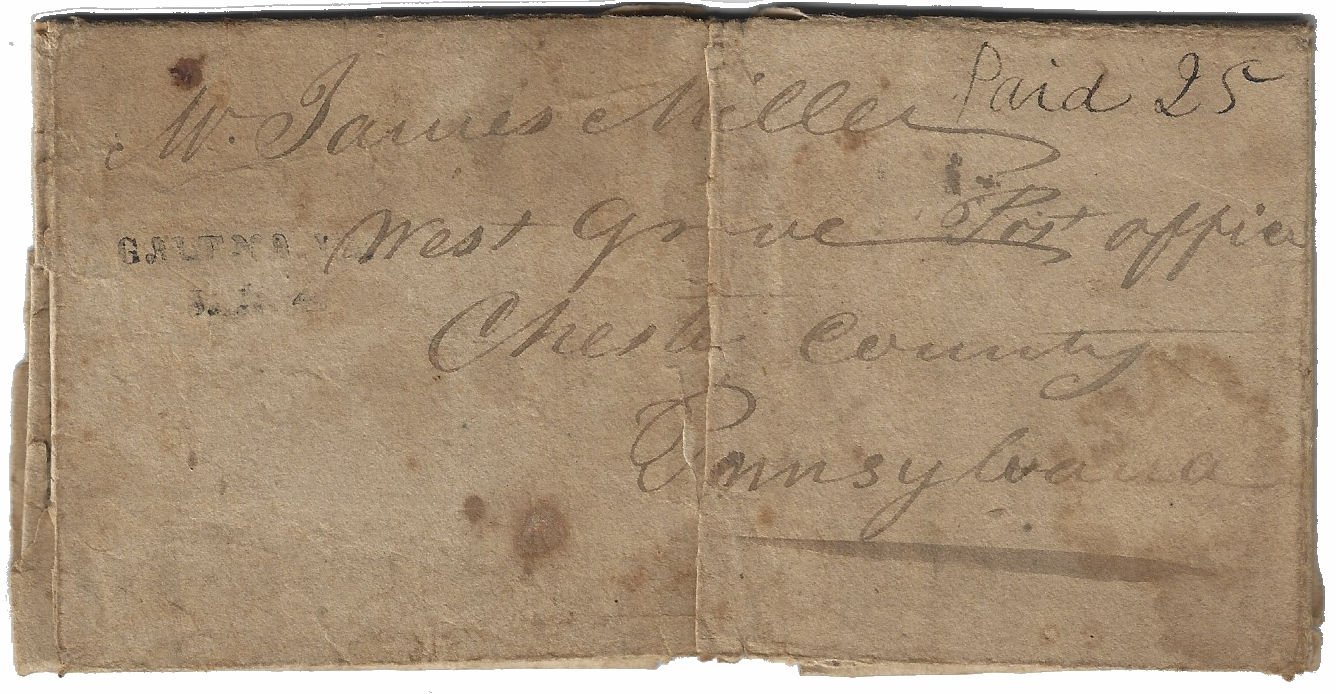 Paid 25
M. James Miller
West Grove Post office
Chester County
Pennsylvania